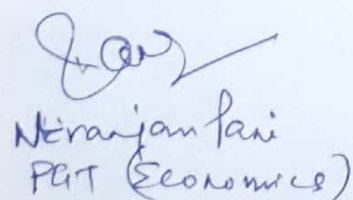 Niranjan Pani
PGT (Economics)